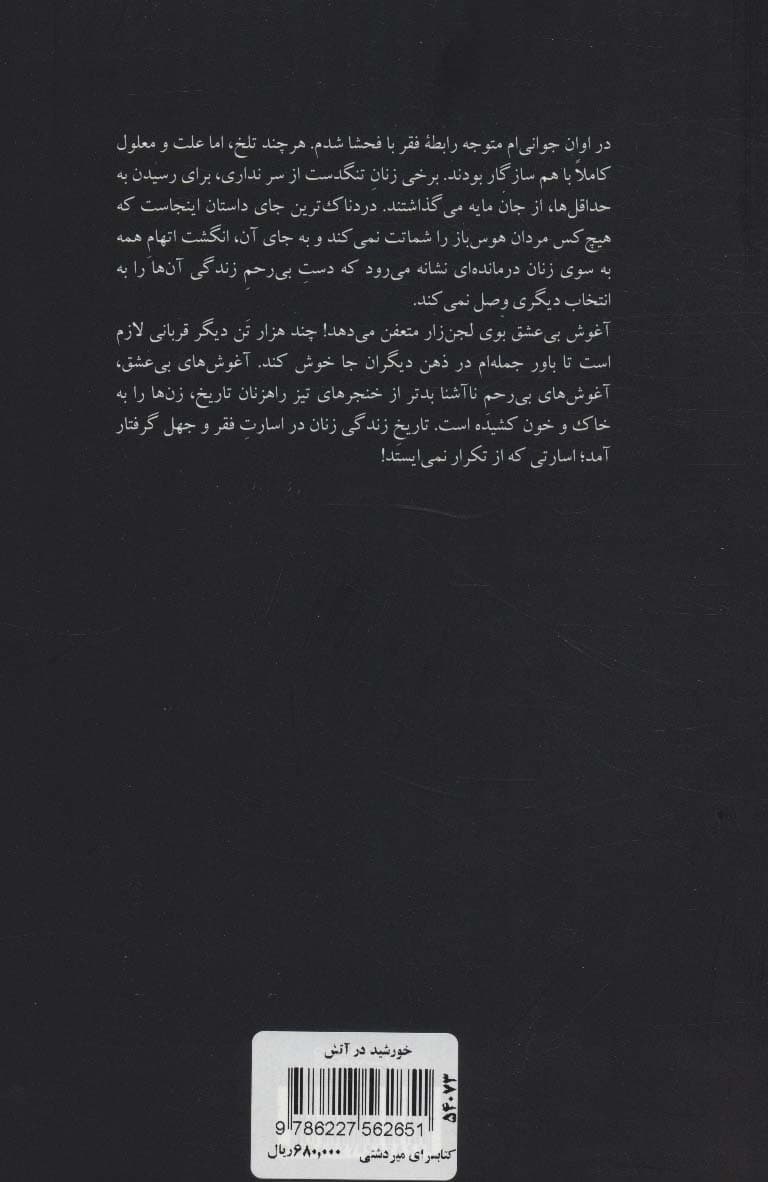 در اوان جوانی‌ام متوجه رابطهٔ فقر با فحشا شدم. هرچند تلخ، اما علت و معلول
کاملاً با هم سازگار بودند. برخی زنانِ تنگدست از سر نداری، برای رسیدن به
حداقل‌ها، از جان مایه می‌گذاشتند. دردناک‌ترین جای داستان اینجاست که
هیچ‌کس مردان هوس‌باز را شماتت نمی‌کند و به جای آن، انگشت اتهامِ همه
به سوی زنان درمانده‌ای نشانه می‌رود که دستِ بی‌رحمِ زندگی آن‌ها را به
انتخاب دیگری وصل نمی‌کند.
آغوش بی‌عشق بوی لجن‌زار متعفن می‌دهد! چند هزار تَن دیگر قربانی لازم
است تا باور جمله‌ام در ذهن دیگران جا خوش کند. آغوش‌های بی‌عشق،
آغوش‌های بی‌رحمِ ناآشنا بدتر از خنجرهای تیز راهزنان تاریخ، زن‌ها را به
خاک و خون کشیده است. تاریخِ زندگی زنان در اسارتِ فقر و جهل گرفتار
آمد؛ اسارتی که از تکرار نمی‌ایستد!
خورشید در آتش
۵۴۰۷۳
9 786227 562651
کتابسرای میردشتی ۶۸۰,۰۰۰ریال